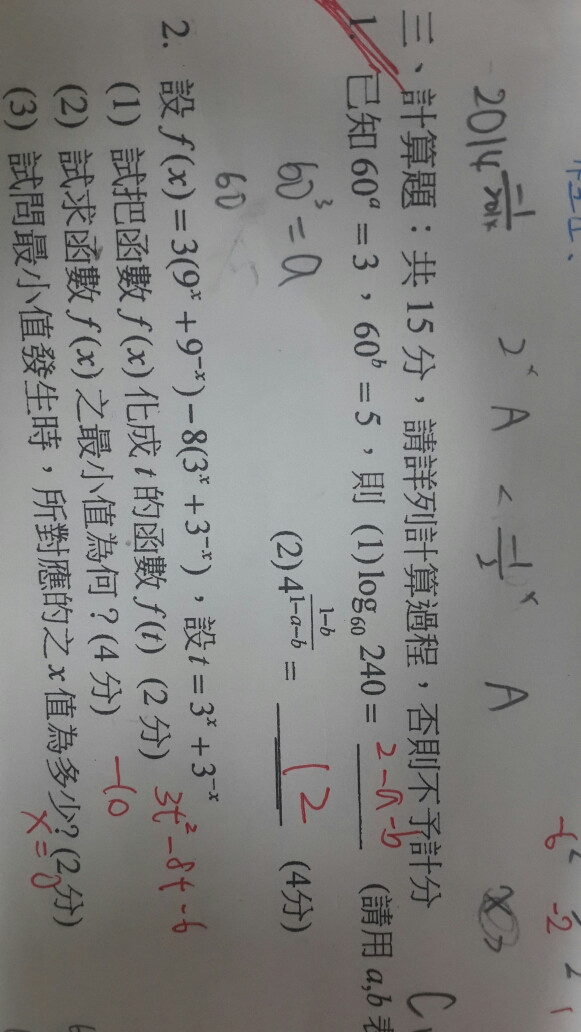 2014^{-1/2014} 2^x A < \frac{-1}{2}^x A
三、計算題：共 15 分，請詳列計算過程，否則不予計分
1. 已知 60^a = 3，60^b = 5，則 (1) log_{60} 240 = 2-a-b (請用 a,b 表
60^3 = a (2) 4^{\frac{1-b}{1-a-b}} = 12 (4分)
60
2. 設 f(x) = 3(9^x + 9^{-x}) - 8(3^x + 3^{-x})，設 t = 3^x + 3^{-x}
(1) 試把函數 f(x) 化成 t 的函數 f(t) (2 分) 3t^2-8t-6
(2) 試求函數 f(x) 之最小值為何？(4 分) -10
(3) 試問最小值發生時，所對應的之 x 值為多少？(2 分) x=0